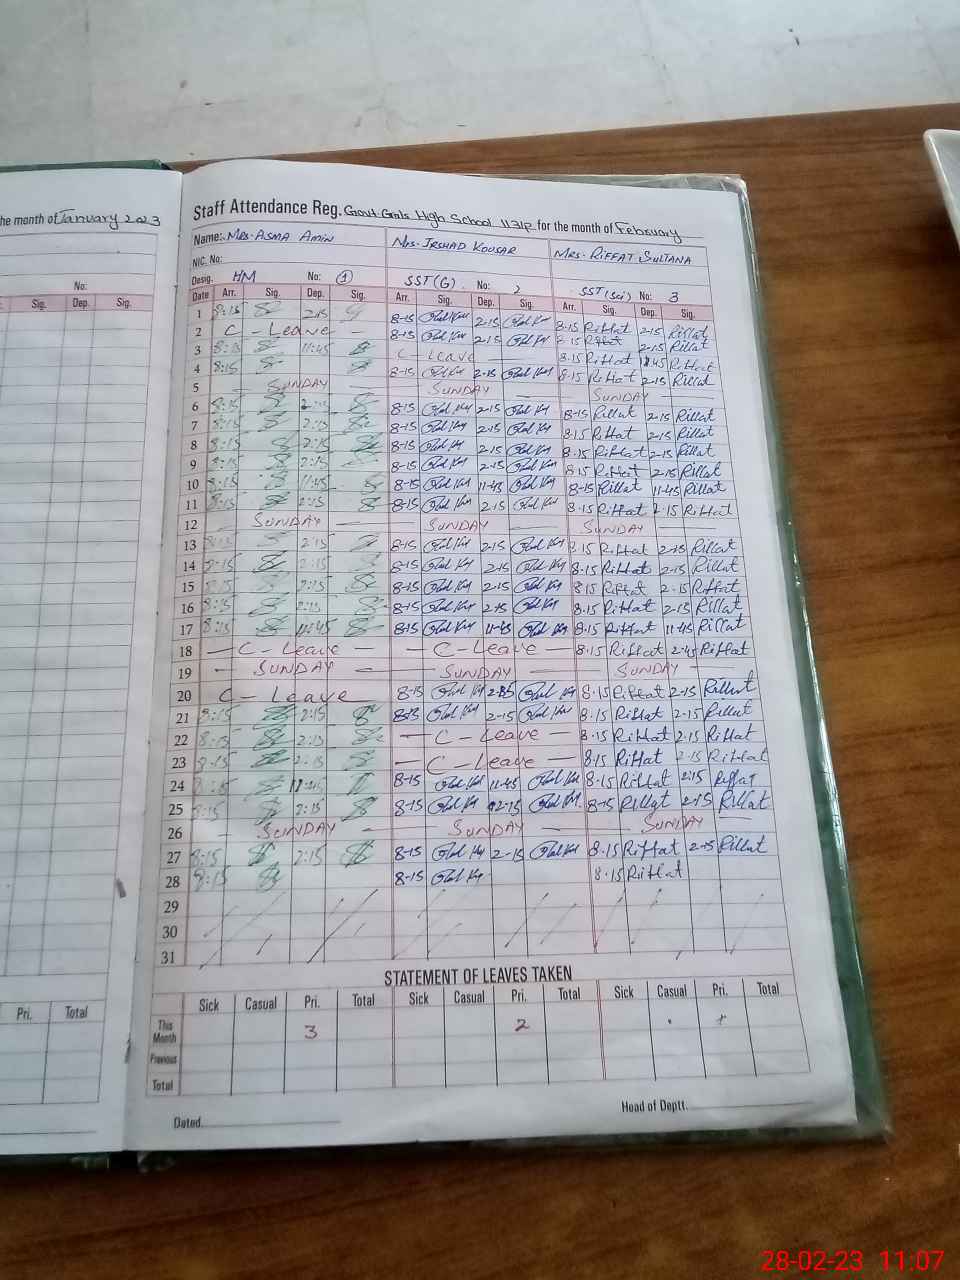 he month of January 2023
No:
Sig. Dep. Sig.
Pri. Total
Staff Attendance Reg. Govt. Girls High School 113/P for the month of February
Name: Mrs. Asma Amin Mrs. Irshad Kousar Mrs. Riffat Sultana
NIC. No:
Desig. HM No: 1 SST(G) No: 2 SST(Sci) No: 3
Date Arr. Sig. Dep. Sig. Arr. Sig. Dep. Sig. Arr. Sig. Dep. Sig.
1 8:15 2:15 8-15 2-15 8-15 Riffat 2-15 Riffat
2 C - Leave - 8-15 2-15 8-15 Riffat 2-15 Riffat
3 8:15 11:45 C - Leave 8-15 Riffat 11:45 Riffat
4 8:15 8-15 2-15 8-15 Riffat 2-15 Riffat
5 — SUNDAY — SUNDAY — SUNDAY —
6 8:15 2:15 8-15 2-15 8-15 Riffat 2-15 Riffat
7 8:15 2:15 8-15 2-15 8-15 Riffat 2-15 Riffat
8 8:15 2:15 8-15 2-15 8-15 Riffat 2-15 Riffat
9 8:15 2:15 8-15 2-15 8-15 Riffat 2-15 Riffat
10 8:15 11:45 8-15 11-45 8-15 Riffat 11-45 Riffat
11 8:15 2:15 8-15 2-15 8-15 Riffat 2-15 Riffat
12 SUNDAY — SUNDAY — SUNDAY —
13 8:15 2:15 8-15 2-15 8-15 Riffat 2-15 Riffat
14 8:15 2:15 8-15 2-15 8-15 Riffat 2-15 Riffat
15 8:15 2:15 8-15 2-15 8-15 Riffat 2-15 Riffat
16 8:15 2:15 8-15 2-15 8-15 Riffat 2-15 Riffat
17 8:15 11:45 8-15 11-45 8-15 Riffat 11-45 Riffat
18 — C - Leave — — C - Leave — 8-15 Riffat 2-45 Riffat
19 — SUNDAY — — SUNDAY — SUNDAY —
20 C - Leave 8-15 2-15 8-15 Riffat 2-15 Riffat
21 8:15 2:15 8-15 2-15 8-15 Riffat 2-15 Riffat
22 8:15 2:15 — C - Leave — 8-15 Riffat 2-15 Riffat
23 8:15 2:15 — C - Leave — 8-15 Riffat 2-15 Riffat
24 8:15 11:45 8-15 11-45 8-15 Riffat 2:15 Riffat
25 8:15 2:15 8-15 2-15 8-15 Riffat 2-15 Riffat
26 — SUNDAY — SUNDAY — SUNDAY —
27 8:15 2:15 8-15 2-15 8-15 Riffat 2-15 Riffat
28 8:15 8-15 8-15 Riffat
29
30
31
STATEMENT OF LEAVES TAKEN
Sick Casual Pri. Total Sick Casual Pri. Total Sick Casual Pri. Total
This Month 3 2
Previous
Total
Dated Head of Deptt.
28-02-23 11:07